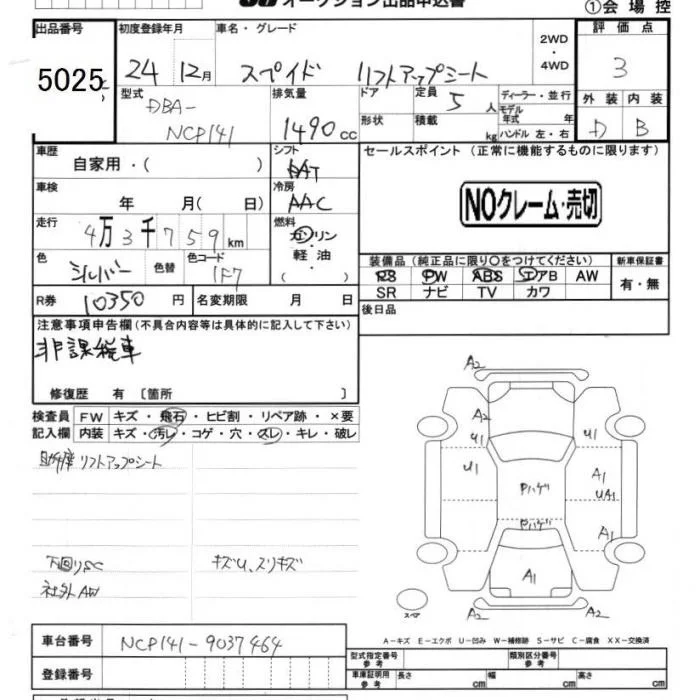 オークション出品申込書
①会場控
出品番号 初度登録年月 車名・グレード 2WD・4WD 評価点
5025 24 12月 スペイド リフトアップシート 3
型式 排気量 ドア 定員 5人 ディーラー・並行 外装 内装
DBA-
NCP141 1490cc 形状 積載 kg モデル年式 年 D B
ハンドル 左・右
車歴 シフト セールスポイント(正常に機能するものに限ります)
自家用・( ) AT
車検 冷房
年 月(日) AAC NOクレーム・売切
走行 燃料
4万3千759km ガソリン・軽油・( )
色 色替 色コード 装備品(純正品に限り○をつけてください) 新車保証書
シルバー 1F7 PS PW ABS エアB AW 有・無
SR ナビ TV カワ
R券 10350円 名変期限 月 日 後日品
注意事項申告欄(不具合内容等は具体的に記入して下さい)
非課税車
修復歴 有〔箇所 〕
検査員 FW キズ・飛石・ヒビ割・リペア跡・×要
記入欄 内装 キズ・汚レ・コゲ・穴・スレ・キレ・破レ
助手席リフトアップシート
下回りSC キズU、スリキズ
社外AW
A2
A2
U1 U1
U1 A1
Pハゲ UA1
Pハゲ A1
A1
スペア
A-キズ E-エクボ U-凹み W-補修跡 S-サビ C-腐食 XX-交換済
車台番号 NCP141-9037464
型式指定番号 参考 類別区分番号 参考
登録番号 車庫証明用 参考 長さ cm 幅 cm 高さ cm